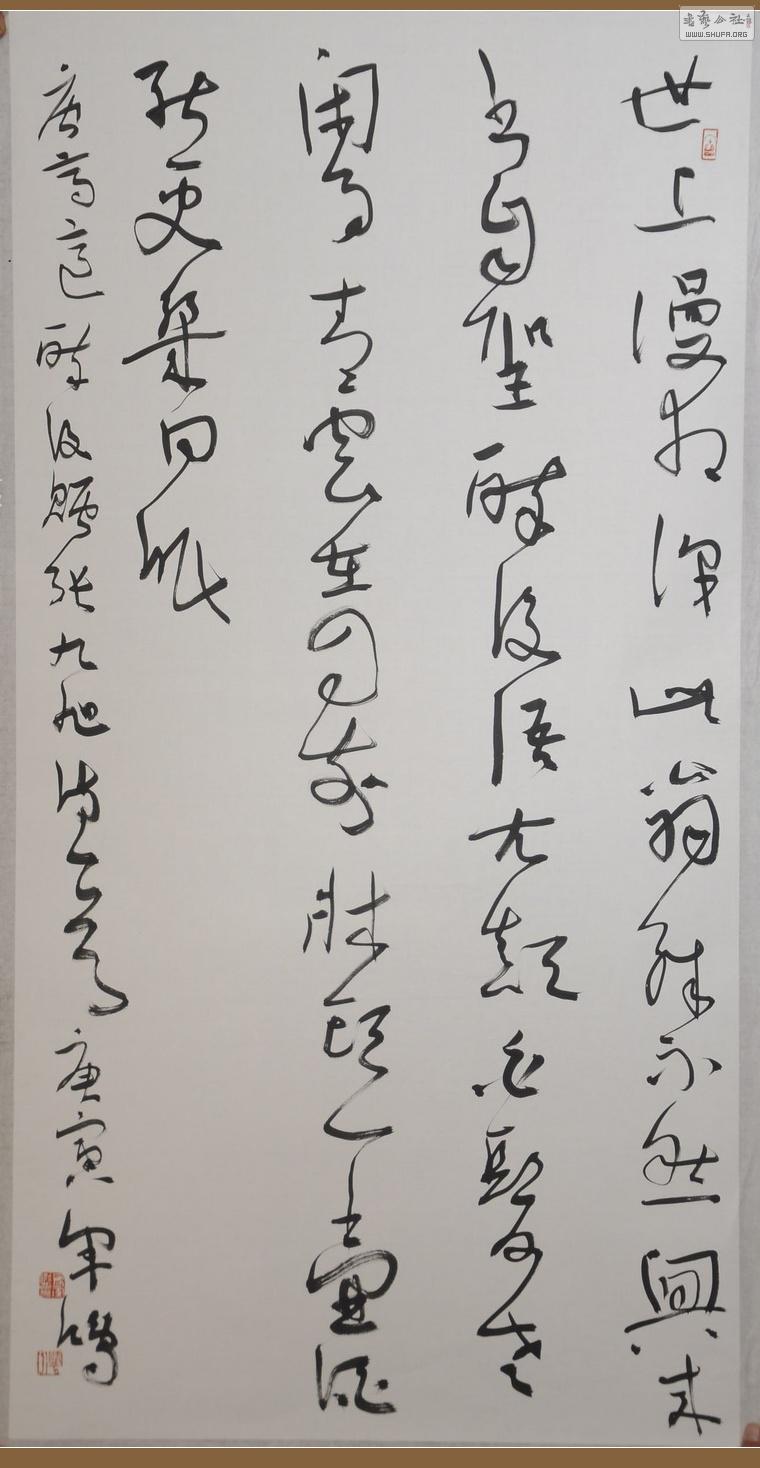 書藝公社
WWW.SHUFA.ORG
世上謾相識此翁殊不然興来
書自聖醉後語尤顛白髮老
閑事青雲在目前牀頭一壺酒
能更幾回眠
唐高適醉後贈張九旭詩一首庚寅